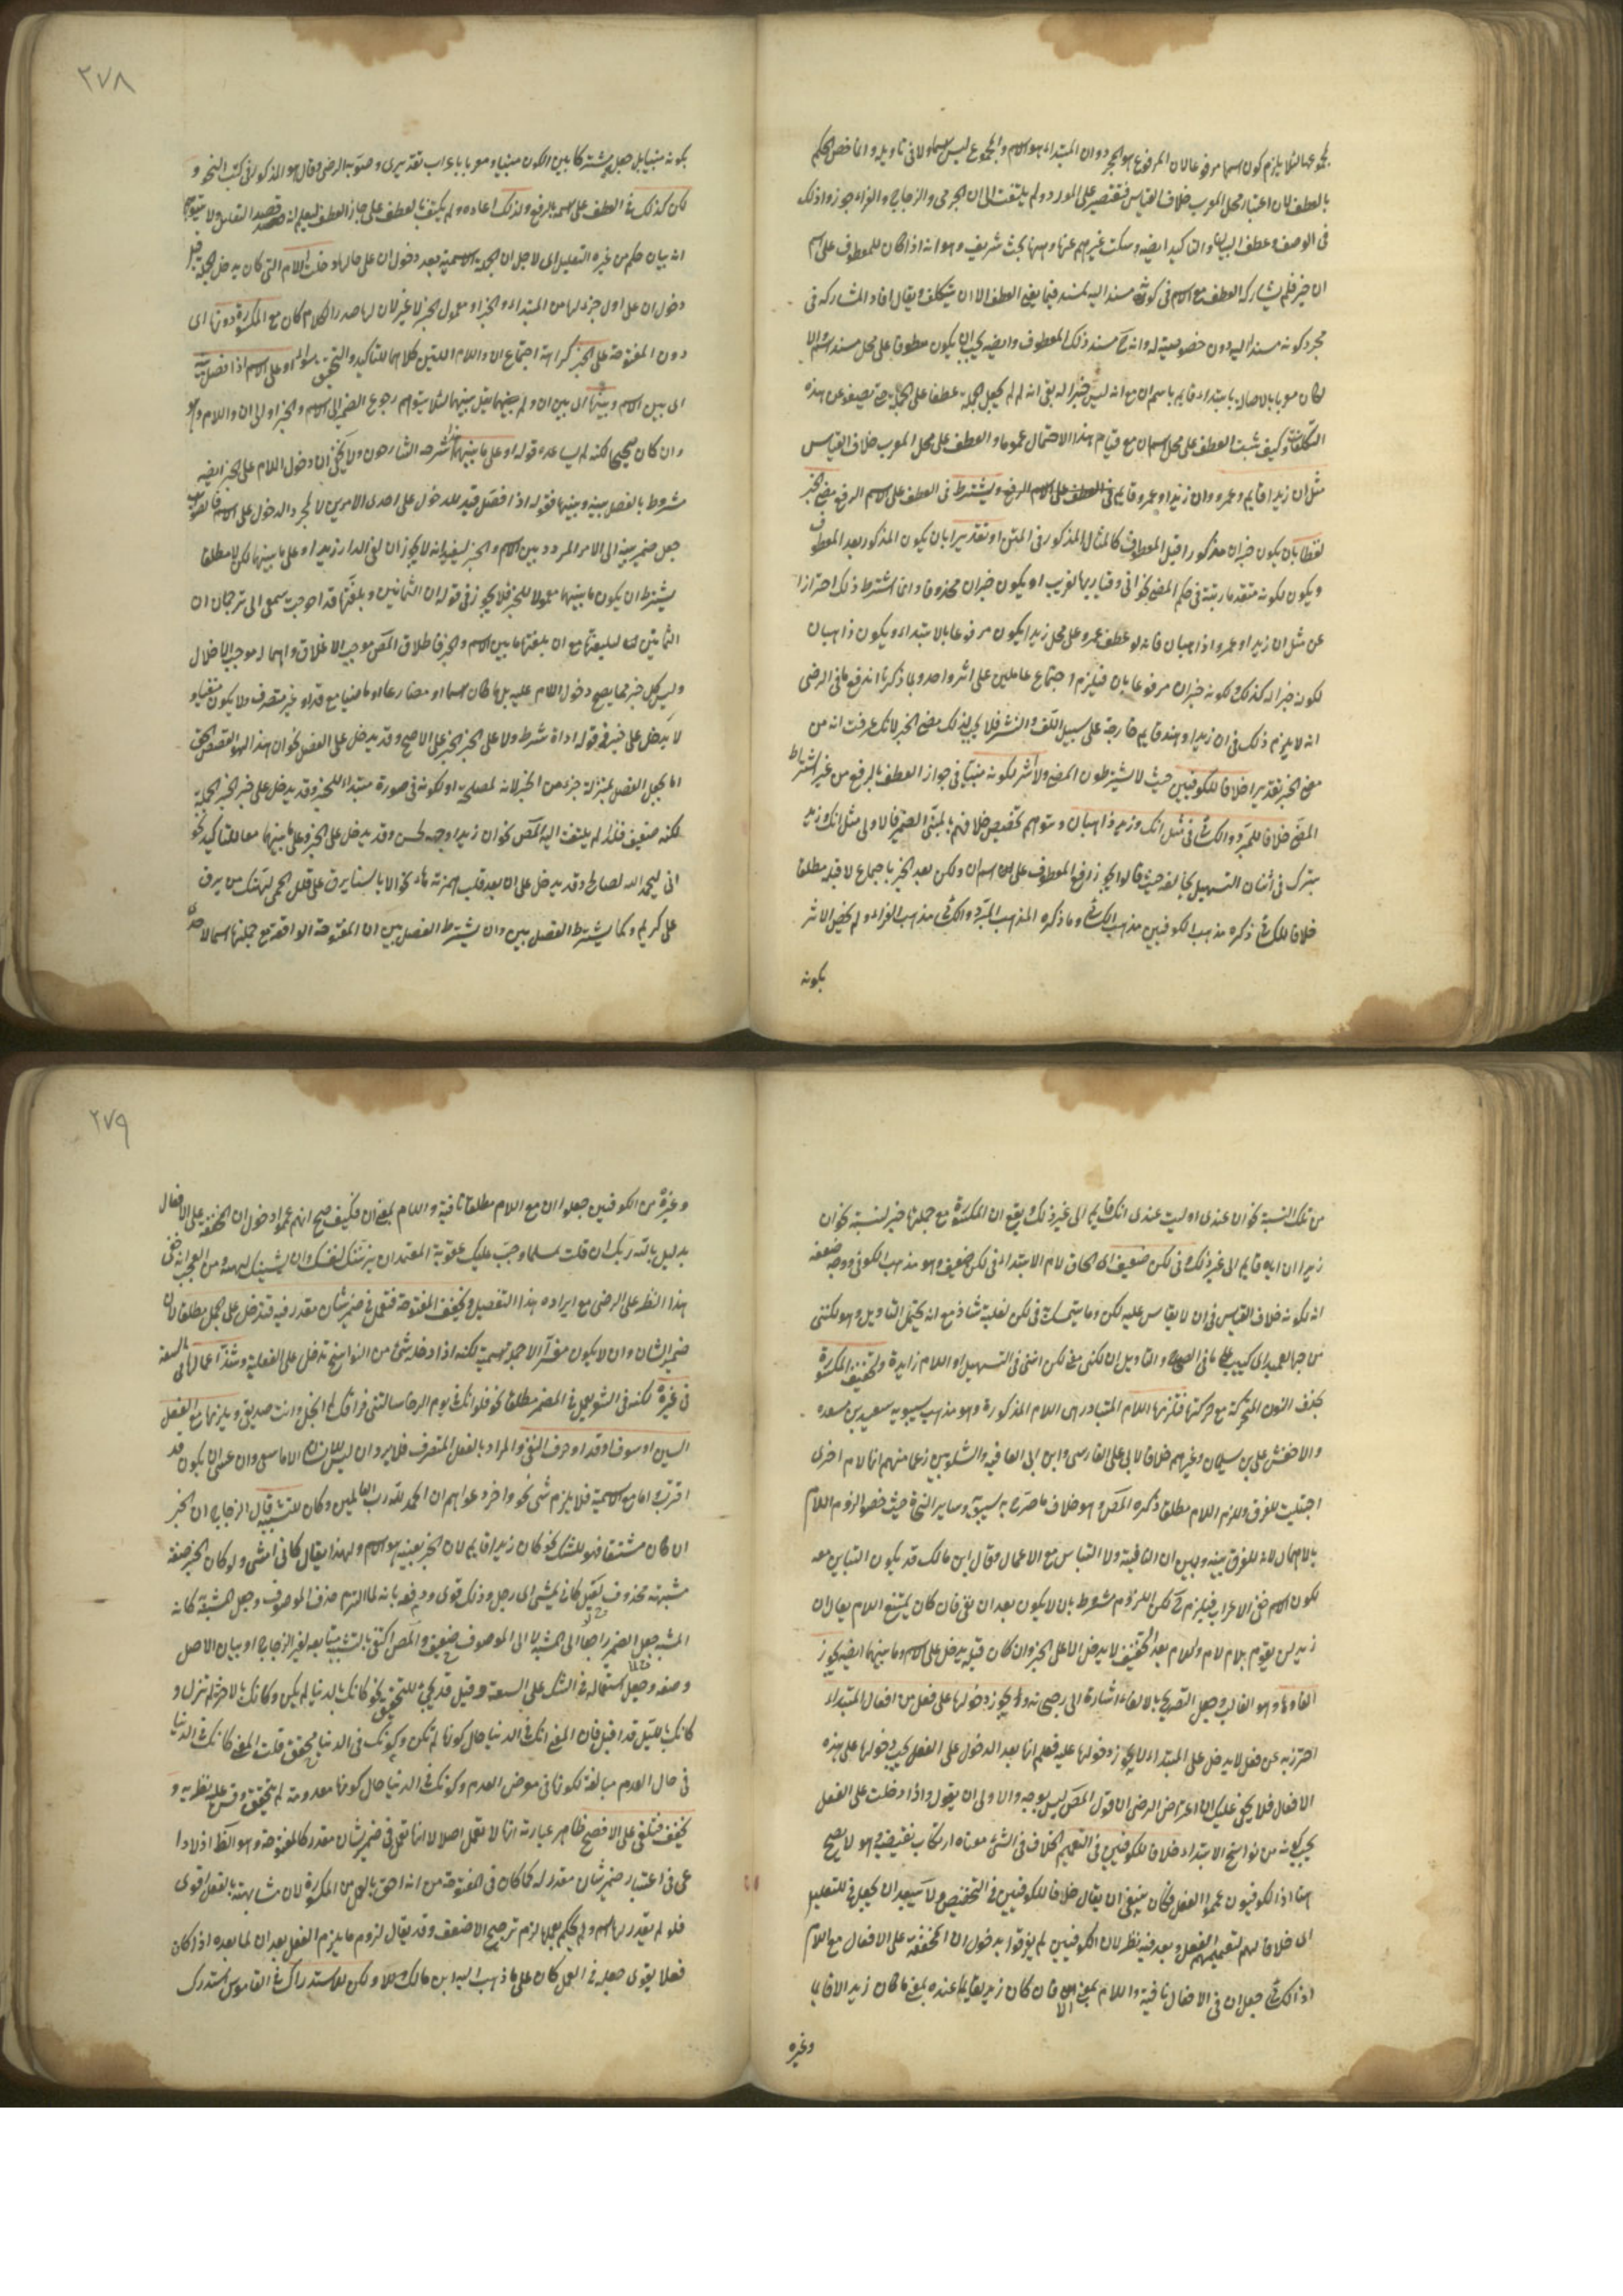 لمجموعها لئلا يلزم كون اسمها مرفوعا لان المرفوع هو المجرد وان المبتداء هو الاسم والمجموع ليس اسما ولا في تاويله وانما خص الحكم
بالعطف لان اعتبار محل المعرب خلاف القياس فيقتصر على المورد ولم يلتفت الى ان الجرمي والزجاج والفراء جوزوا ذلك
في الوصف وعطف البيان والتاكيد ايضه وسكت غيرهم عنها وههنا بحث شريف وهو انه اذا كان للمعطوف على اسم
ان خبر فلم يشارك المعطوف مع الاسم في كونه مسندا اليه لمسند فيما يعني العطف الا ان يتكلف ويقال افاد المشاركة في
مجرد كونه مسندا اليه دون خصوصية له وانه مسند ذلك المعطوف وايضه يجب ان يكون معطوفا على محل مسند
لكان معربا بالاصالة بابتداء قايم باسم ان مع انه ليس خبرا له بقى انه لم لم يجعل الجملة عطفا على الجملة حتى يصفو عن هذه
التكلفات وكيف يثبت العطف على محل اسم ان مع قيام هذا الاحتمال عموما والعطف على محل المعرب خلاف القياس
مثل ان زيدا قايم وعمرو وان زيدا وعمرو قايم في العطف على الاسم الرفع ويشترط في العطف على الاسم الرفع مضي الخبر
لفظا بان يكون خبر ان مذكورا قبل المعطوف كالمثال المذكور في المتن او تقديرا بان يكون المذكور بعد المعطوف
ويكون لكونه متقدما رتبة في حكم المضي نحو اني وقيار بها لغريب او يكون خبر ان محذوفا وانما اشترط ذلك احترازا
عن مثل ان زيدا وعمرو اذاهبان فانه لو عطف عمرو على محل زيدا يكون مرفوعا بالابتداء ويكون ذاهبان
لكونه خبرا له كذلك ولكونه خبر ان مرفوعا بان فيلزم اجتماع عاملين على اثر واحد وبما ذكرنا اندفع ما في الرضي
انه لا يلزم ذلك في ان زيدا وهند قايم خارجة على سبيل اللف والنشر فلا يجب لذلك مضي الخبر لانك عرفت انه من
مضي الخبر تقديرا خلافا للكوفيين حيث لا يشترطون المضي ولا اثر لكونه مبنيا في جواز العطف بالرفع من غير اشتراط
المضي خلافا للمبرد والكسائي في مثل انك وزيد ذاهبان ويتوهم تخصيص خلافهم بالمبني الضمير فالاولى مثل انك وزيد
يترك في اثنان التسهيل يخالفه حيث قالوا يجوز رفع المعطوف على اسم ان ولكن بعد الخبر باجماع لا قبله مطلقا
خلافا للكسائي ذكره مذهب الكوفيين مذهب الكسائي وما ذكره المذهب المبرد والكسائي مذهب الفراء ولم يخص الاثر
بكونه
٢٧٨
بكونه مبنيا بل جعل مشتركا بين الكون مبنيا ومعربا باعراب تقديري وصوبه الرضي وقال هو المذكور في كتب النحو و
لكن كذلك في العطف على اسمه بالرفع ولذلك اعاده ولم يكتف بالعطف على جاز العطف ليعلم انه قصد التفنن ولا يتوهم
انه بيان حكم من غيره التعليل اى لاجل ان الجملة الاسمية بعد دخول ان على حالها دخلت اللام التي كان يدخل الجملة قبل
دخول ان على اول جزء لها من المبتداء والخبر او معمول الخبر لا غير لان لها صدر الكلام كان مع المكسورة دونها اى
دون المفتوحة على الخبر كراهة اجتماع ان واللام اللتين كلاهما للتاكيد والتحقيق او على الاسم اذا فصل بينه
اى بين الاسم وبينها اى بين ان ولم يقل بينهما لئلا يتوهم رجوع الضمير الى الاسم والخبر اولى ان واللام وهو
وان كان صحيحا لكنه لم يساعده قوله او على ما بينهما شرحه الشارحون ولا يخفى ان دخول اللام على الخبر ايضه
مشروط بالفصل بينه وبينها فقوله اذا فصل قيد للدخول على احدى الامرين لا لمجرد الدخول على الاسم فالصواب
جعل ضمير بينه الى الامر المردد بين الاسم والخبر ليفيد انه لا يجوز ان لفي الدار زيدا او على ما بينهما لكن لا مطلقا
يشترط ان يكون ما بينهما معمولا للخبر فلا يجوز في قوله ان الثمانين وبلغتها قد احوجت سمعي الى ترجمان ان
الثمانين لبلغتها مع ان بلغتها ما بين الاسم والخبر فاطلاق المص موجب الاغلاق واهماله موجب الاخلال
وليس كل خبر مما يصح دخول اللام عليه بل ما كان اسما او مضارعا او ماضيا مع قد او غير متصرف ولا يكون منفيا و
لا يدخل على خبر في قوله اداة شرط ولا على الخبر الخبر على الاصح وقد يدخل على الفصل نحو ان هذا لهو القصص الحق
اما بجعل الفصل بمنزلة جزء من الخبر لانه لمصلحة او لكونه في صورة مبتداء للخبر وقد يدخل على خبر الخبر الجملة
لكنه ضعيف فلذا لم يلتفت اليه المص نحو ان زيدا وجهه لحسن وقد يدخل على الخبر وعلى ما بينهما معا للتاكيد نحو
اني لبحمد الله لصالح وقد يدخل على ان بعد قلب همزته هاء نحو الا يا سنا برق على قلل الحمى لهنك من برق
على كريم وكما يشترط الفصل بين وان يشترط الفصل بين ان المفتوحة الواقعة مع جملتها اسما لاحدى
من تلك النسبة نحو ان عندى او ليت عندى انك قايم الى غير ذلك ويقع ان المكسورة مع جملتها خبر لنسبة نحو ان
زيدا ان اباه قايم الى غير ذلك وفي لكن ضعيف اى الحاق لام الابتداء في لكن ضعيف وهو مذهب الكوفي ووجه ضعفه
انه لكونه خلاف القياس في ان لا يقاس عليه لكن وما يتمسك في لكن لغلبة شاذ مع انه يحتمل التاويل وهو لكنني
من حبها لعميد اى كئيب على ما في الصحاح والتاويل ان لكنني مخفف لكن انني في التسهيل او اللام زايدة وتخفف المكسورة
بحذف النون المتحركة مع حركتها فتلزمها اللام المتبادر هى اللام المذكورة وهو مذهب سيبويه سعيد بن مسعدة
والاخفش علي بن سليمان وغيرهم خلافا لابي علي الفارسي وابن ابي العافية والشلوبين زعما منهم انها لام اخرى
اجتلبت للفرق ولزوم اللام مطلقا ذكره المص وهو خلاف ما صرح به سيبويه وساير النحاة حيث خصوا لزوم اللام
بالاهمال لانه للفرق بينه وبين ان النافية ولا التباس مع الاعمال وقال ابن مالك قد يكون التباس معه
لكون الاسم خفي الاعراب فيلزم لكن اللزوم مشروط بان لا يكون بعد ان نفي فان كان يمتنع اللام يقال ان
زيد لن يقوم بلا لام واللام بعد التخفيف لا يدخل الا على الخبر وان كان قبله يدخل على الاسم وما بينهما ايضه يجوز
الغاءها وهو الغالب وجعل التصريح بالالغاء اشارة الى رجحانه ويجوز دخولها على فعل من افعال المبتداء
احترز به عن فعل لا يدخل على المبتداء فلا يجوز دخولها عليه فعلم انها بعد الدخول على الفعل يجب دخولها على هذه
الافعال فلا يخفى عليك ان اعتراض الرضي ان قول المص ليس بوجه والاولى ان يقول واذا دخلت على الفعل
يجب كونه من نواسخ الابتداء خلافا للكوفيين في التعميم الخلاف في الشيء معناه ارتكاب نقيضه وهو لا يصح
ههنا اذ الكوفيون عمموا الفعل فكان ينبغي ان يقال خلافا للكوفيين في التخصيص ولا يبعد ان يجعل في للتعليل
اى خلافا لهم لتعميمهم الفعل وبعد فيه نظر لان الكوفيين لم يفرقوا بدخول ان المخففة على الافعال مع اللام
اذ الكسائي جعل ان في الافعال نافية واللام بمعنى الا فان كان زيد لقايما عنده بمعنى ما كان زيد الا قايما
وغيره
٢٧٩
وغيره من الكوفيين جعلوا ان مع اللام مطلقا نافية واللام بمعنى ان فكيف صح انهم عمموا دخول ان المخففة على الافعال
بدليل بالله ربك ان قتلت لمسلما وجبت عليك عقوبة المتعمد ان يزينك لنفسك وان يشينك لهيه ومن العجب انه خفي
هذا النظر على الرضي مع ايراده هذا التفصيل وتخفف المفتوحة فتعمل في ضمير شان مقدر فيه فتدخل على الجمل مطلقا لان
ضمير الشان وان لا يكون مفسرا الا جملة اسمية لكنه اذا دخله شيء من النواسخ تدخل على الفعلية وشذ اعمالها بالسعة
في غيره لكنه في الشعر يعمل في المضمر مطلقا نحو فلو انك في يوم الرخاء سالتني فراقك لم ابخل وانت صديق ويلزمها مع الفعل
السين او سوف او قد او حرف النفي والمراد بالفعل المتصرف فلا يرد وان ليس للانسان الا ما سعى وان عسى ان يكون قد
اقترب واما مع الاسمية فلا يلزم شيء نحو واخر دعواهم ان الحمد لله رب العالمين وكان للتشبيه قال الزجاج ان الخبر
ان كان مشتقا فهو للشك نحو كان زيدا قايم لان الخبر بعينه هو الاسم ولهذا يقال كاني امشي ولو كان الخبر صفة
مشبهة محذوف لقيل كاني يمشي اى رجل وذلك قوى ودفعه بانه لما التزم حذف الموصوف وجعل المشبه كانه
المشبه جعل الضمير راجعا الى المشبه لا الى الموصوف ضعيف والمص اكتفى بالتشبيه متابعة لغير الزجاج او بيان الاصل
وضعه وجعل استعماله في الشك على السعة وقيل قد يجيء للتحقيق نحو كانك بالدنيا لم يكن وكانك بالاخرة لم تزل و
كانك بالليل قد اقبل فان المعنى انك في الدنيا حال كونها لم تكن وكونك في الدنيا محقق قلت المعنى كانك في الدنيا
في حال العدم مبالغة لكونها في معرض العدم وكونك في الدنيا حال كونها معدومة لم يتحقق وقس عليه نظيريه و
تخفف فتلغى على الافصح ظاهر عبارته انها لا تعمل اصلا لا انها تعمل في ضمير شان مقدر كالمفتوحة وهو الظاهر اذ لا داعي
عي في اعتبار ضمير شان مقدر له كما كان في المفتوحة من انه احق بالعمل من المكسورة لان مشابهته بالفعل اقوى
فلو لم يقدر لها اسم ولم يحكم بعملها لزم ترجيح الاضعف وقد يقال لزوم ما يلزم الفعل بعد ان لما بعده اذا كان
فعلا يقوى جعله في العمل كان على ما ذهب اليه ابن مالك ولكن للاستدراك في القاموس استدرك